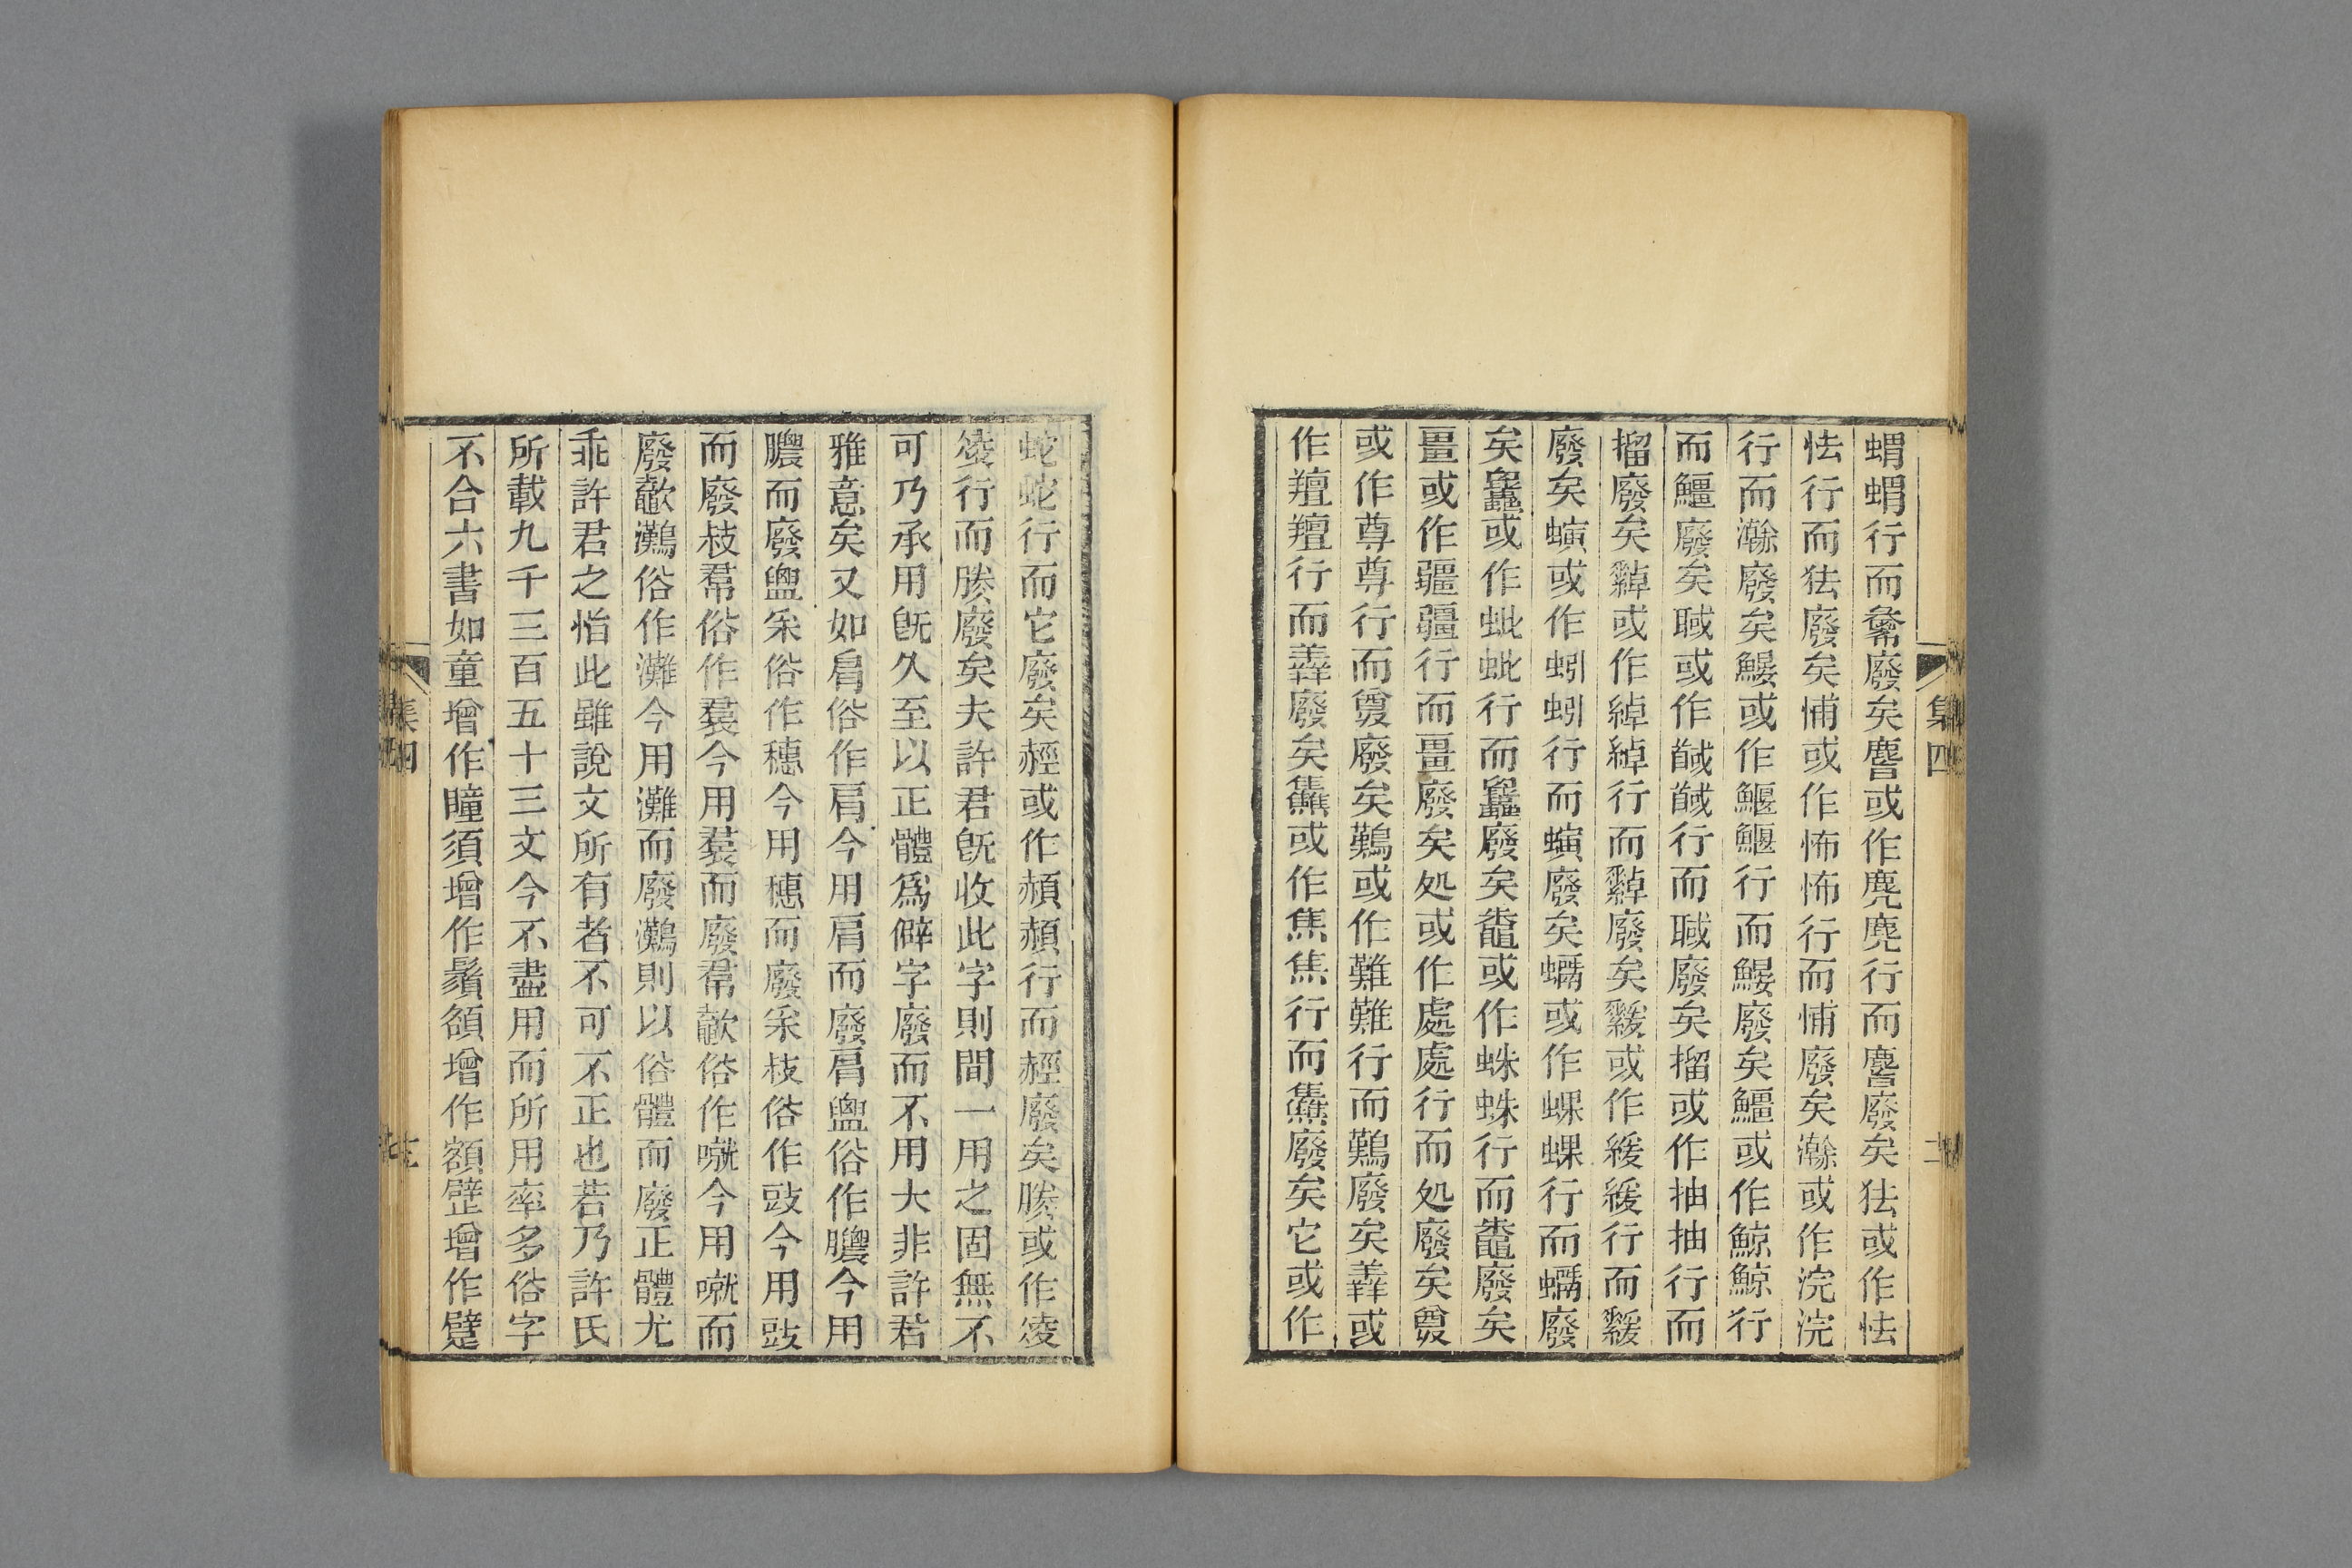 蝟蝟行而𢑥廢矣麔或作麂麂行而麔廢矣㹤或作怯
怯行而㹤廢矣悑或作怖怖行而悑廢矣𤁮或作浣浣
行而𤁮廢矣鰋或作鰋鰋行而鰋廢矣鱷或作鯨鯨行
而鱷廢矣聝或作馘馘行而聝廢矣㨨或作抽抽行而
㨨廢矣繛或作綽綽行而繛廢矣䋿或作緩緩行而䋿
廢矣螾或作蚓蚓行而螾廢矣蠣或作蜾蜾行而蠣廢
矣蠹或作蚍蚍行而蠹廢矣鼄或作蛛蛛行而鼄廢矣
畺或作疆疆行而畺廢矣処或作處處行而処廢矣𢍜
或作尊尊行而𢍜廢矣鷬或作難難行而鷬廢矣羴或
作羶羶行而羴廢矣𤓪或作焦焦行而𤓪廢矣它或作
集四
蛇蛇行而它廢矣䞓或作赬赬行而䞓廢矣𦩎或作凌
凌行而𦩎廢矣夫許君旣收此字則間一用之固無不
可乃承用旣久至以正體爲僻字廢而不用大非許君
雅意矣又如肩俗作肩今用肩而廢肩盥俗作膿今用
膿而廢盥采俗作穗今用穗而廢采枝俗作豉今用豉
而廢枝帬俗作裠今用裠而廢帬歗俗作噈今用噈而
廢歗灘俗作灘今用灘而廢灘則以俗體而廢正體尤
乖許君之恉此雖說文所有者不可不正也若乃許氏
所載九千三百五十三文今不盡用而所用率多俗字
不合六書如童增作瞳須增作鬚頟增作額壁增作躄
集四